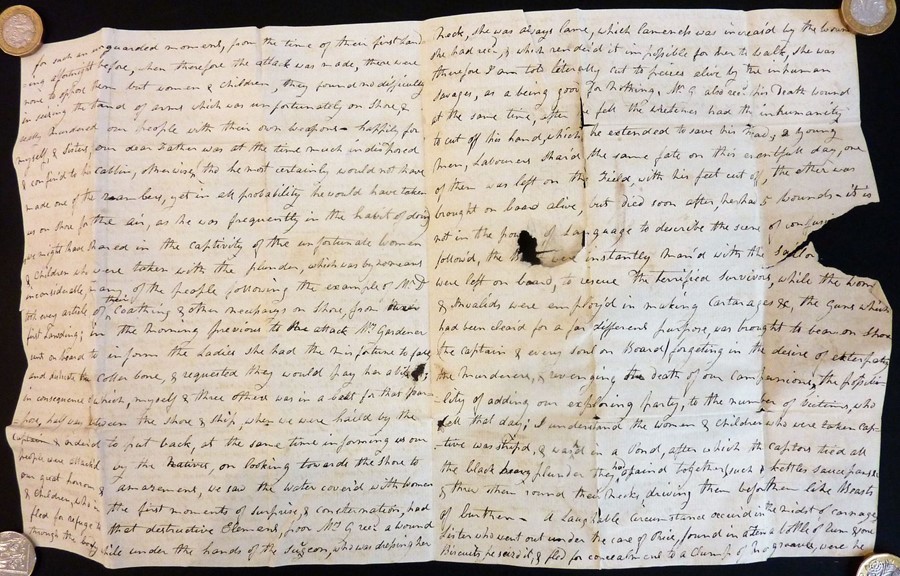 for such an unguarded moment, from the time of their first land-
ing a fortnight before, when therefore the attack was made, there were
none to oppose them but women & children, they found no difficulty
in seizing the stand of arms which was unfortunately on shore, &
our people with their own weapons - happily for
myself & Sisters, our dear Father was at the time much indisposed
& confin'd to his cabbin, otherwise tho' he most certainly would not have
made one of the ramblers, yet in all probability he would have taken
us on shore for the air, as he was frequently in the habit of doing
we might have shared in the captivity of the unfortunate women
& children who were taken with the plunder, which was by no means
inconsiderable, many of the people following the example of Mr D
took every article of their Cloathing & other necessarys on Shore, from their
first Landing; in the morning previous to the attack Mrs Gardener
sent on board to inform the Ladies she had the misfortune to
and dislocate her collar bone, & requested they would pay her a visit;
in consequence which, myself & three others was in a boat for that pur-
pose, half way between the shore & ship, when we were hail'd by the
Captain & order'd to put back, at the same time informing us our
people were attack'd by the Natives, on looking towards the Shore to
our great horror & amazement, we saw the water cover'd with women
& Children, who in the first moments of surprise, & consternation, had
fled for refuge to that destructive Element, poor Mrs G rec'd a wound
through the body while under the hands of the Surgeon, who was dressing her
Neck, she was always lame, which lameness was increas'd by the wound
she had rec'd, & which render'd it impossible for her to walk, she was
therefore I am told literally cut to pieces alive by the inhuman
Savages, as a being good for Nothing, Mr G also rec'd his Death wound
at the same time, after he fell the wretches had the inhumanity
to cut off his hand, which he extended to save his head, 2 young
Men, Labourers Shar'd the same fate on this eventfull day, one
of them was left on the Field, with his feet cut off, the other was
brought on board alive, but died soon after, perhaps 5 wounds - it is
not in the power of Language to describe the scene of confusion
follow'd, the were instantly man'd with the Sailors
were left on board, to rescue the terrified survivors, while the Women
& Invalids were employ'd in making Cartarages &c, the Guns which
had been clear'd for a far different purpose, was brought to bear on Shore
the Captain & every soul on Board, forgeting in the desire of exterpating
the murderers, & revenging the Death of our Companions, the possibi-
lity of adding our exploring party, to the number of Victims, who
fell that day; I understand the Women & Children who were taken Cap-
tive was strip'd, & wash'd in a Pond, after which the Captors tied all
the black heavy plunder they had obtain'd together, such as kettles saucepans &c
& threw them round their Necks, driving them before them like Beasts
of burthen - A Laughable circumstance occur'd in the midst of carnage,
Sister who went out under the care of Price, found in a tent a bottle of Rum & some
Biscuits, he seized it, & fled for concealment to a Clump of Mangroves, were he